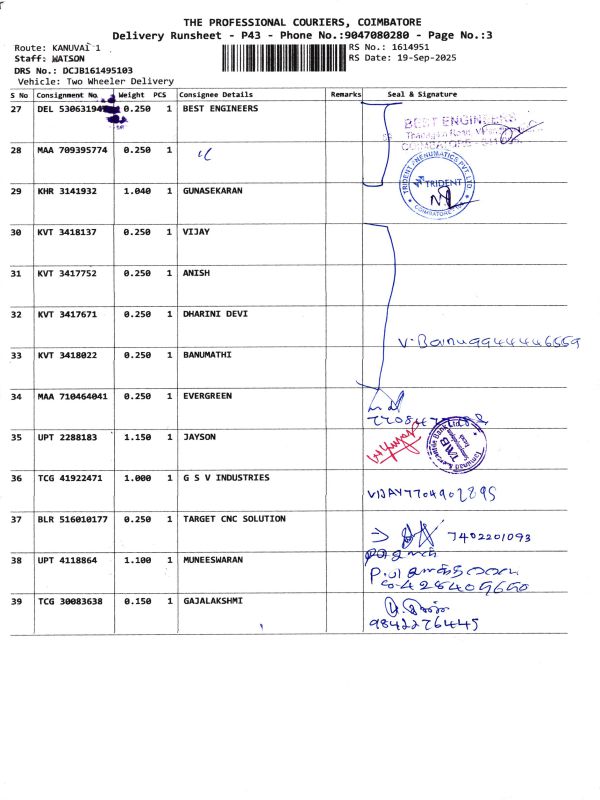 THE PROFESSIONAL COURIERS, COIMBATORE
Delivery Runsheet - P43 - Phone No.:9047080280 - Page No.:3
Route: KANUVAI 1
RS No.: 1614951
Staff: WATSON
RS Date: 19-Sep-2025
DRS No.: DCJB161495103
Vehicle: Two Wheeler Delivery
S No Consignment No. Weight PCS Consignee Details Remarks Seal & Signature
27 DEL 0.250 1 BEST ENGINEERS
BEST ENGINEERS
COIMBATORE
28 MAA 709395774 0.250 1 "
TRIDENT PNEUMATICS PVT. LTD.
TRIDENT
COIMBATORE
29 KHR 3141932 1.040 1 GUNASEKARAN
30 KVT 3418137 0.250 1 VIJAY
31 KVT 3417752 0.250 1 ANISH
32 KVT 3417671 0.250 1 DHARINI DEVI
V. Banu 9944446559
33 KVT 3418022 0.250 1 BANUMATHI
34 MAA 710464041 0.250 1 EVERGREEN
35 UPT 2288183 1.150 1 JAYSON
TMB
36 TCG 41922471 1.000 1 G S V INDUSTRIES
VIJAY 7704902895
37 BLR 516010177 0.250 1 TARGET CNC SOLUTION
7402201093
38 UPT 4118864 1.100 1 MUNEESWARAN
39 TCG 30083638 0.150 1 GAJALAKSHMI
9842276445